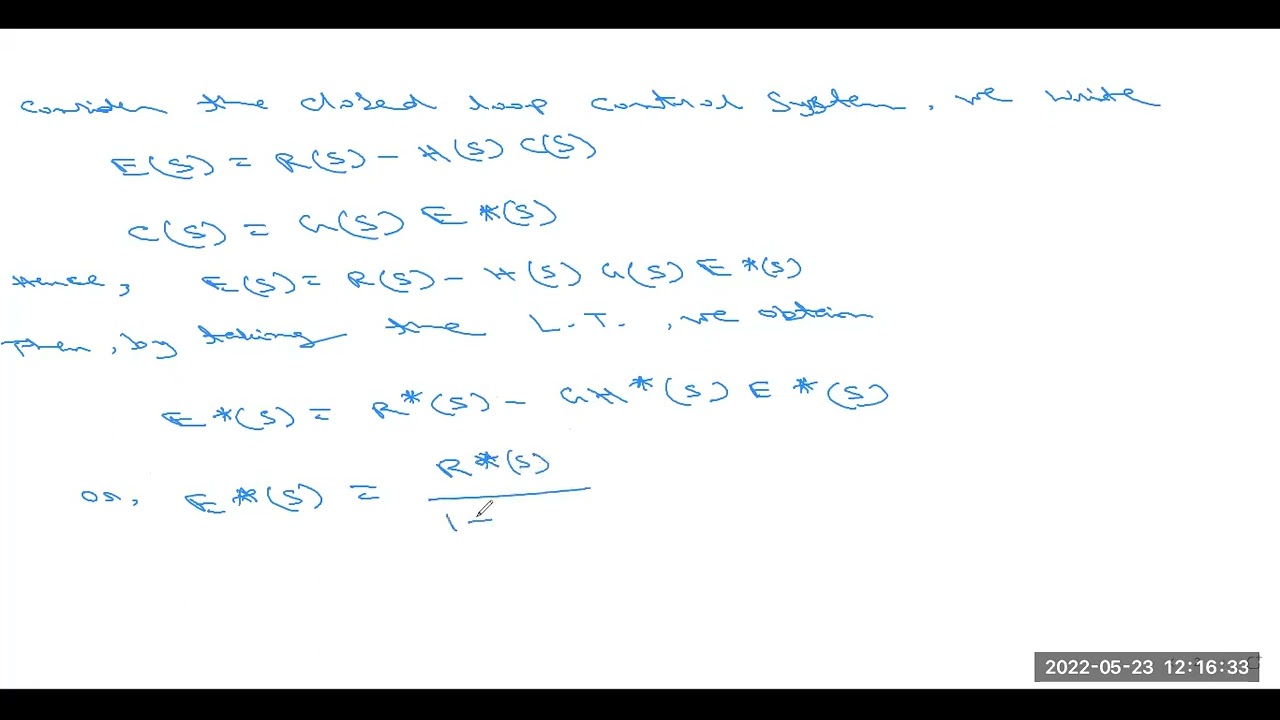 Consider the closed loop control system, we write
E(s) = R(s) - H(s) C(s)
C(s) = G(s) E*(s)
Hence, E(s) = R(s) - H(s) G(s) E*(s)
Then, by taking the L.T., we obtain
E*(s) = R*(s) - GH*(s) E*(s)
R*(s)
or, E*(s) =
1 -
2022-05-23 12:16:33